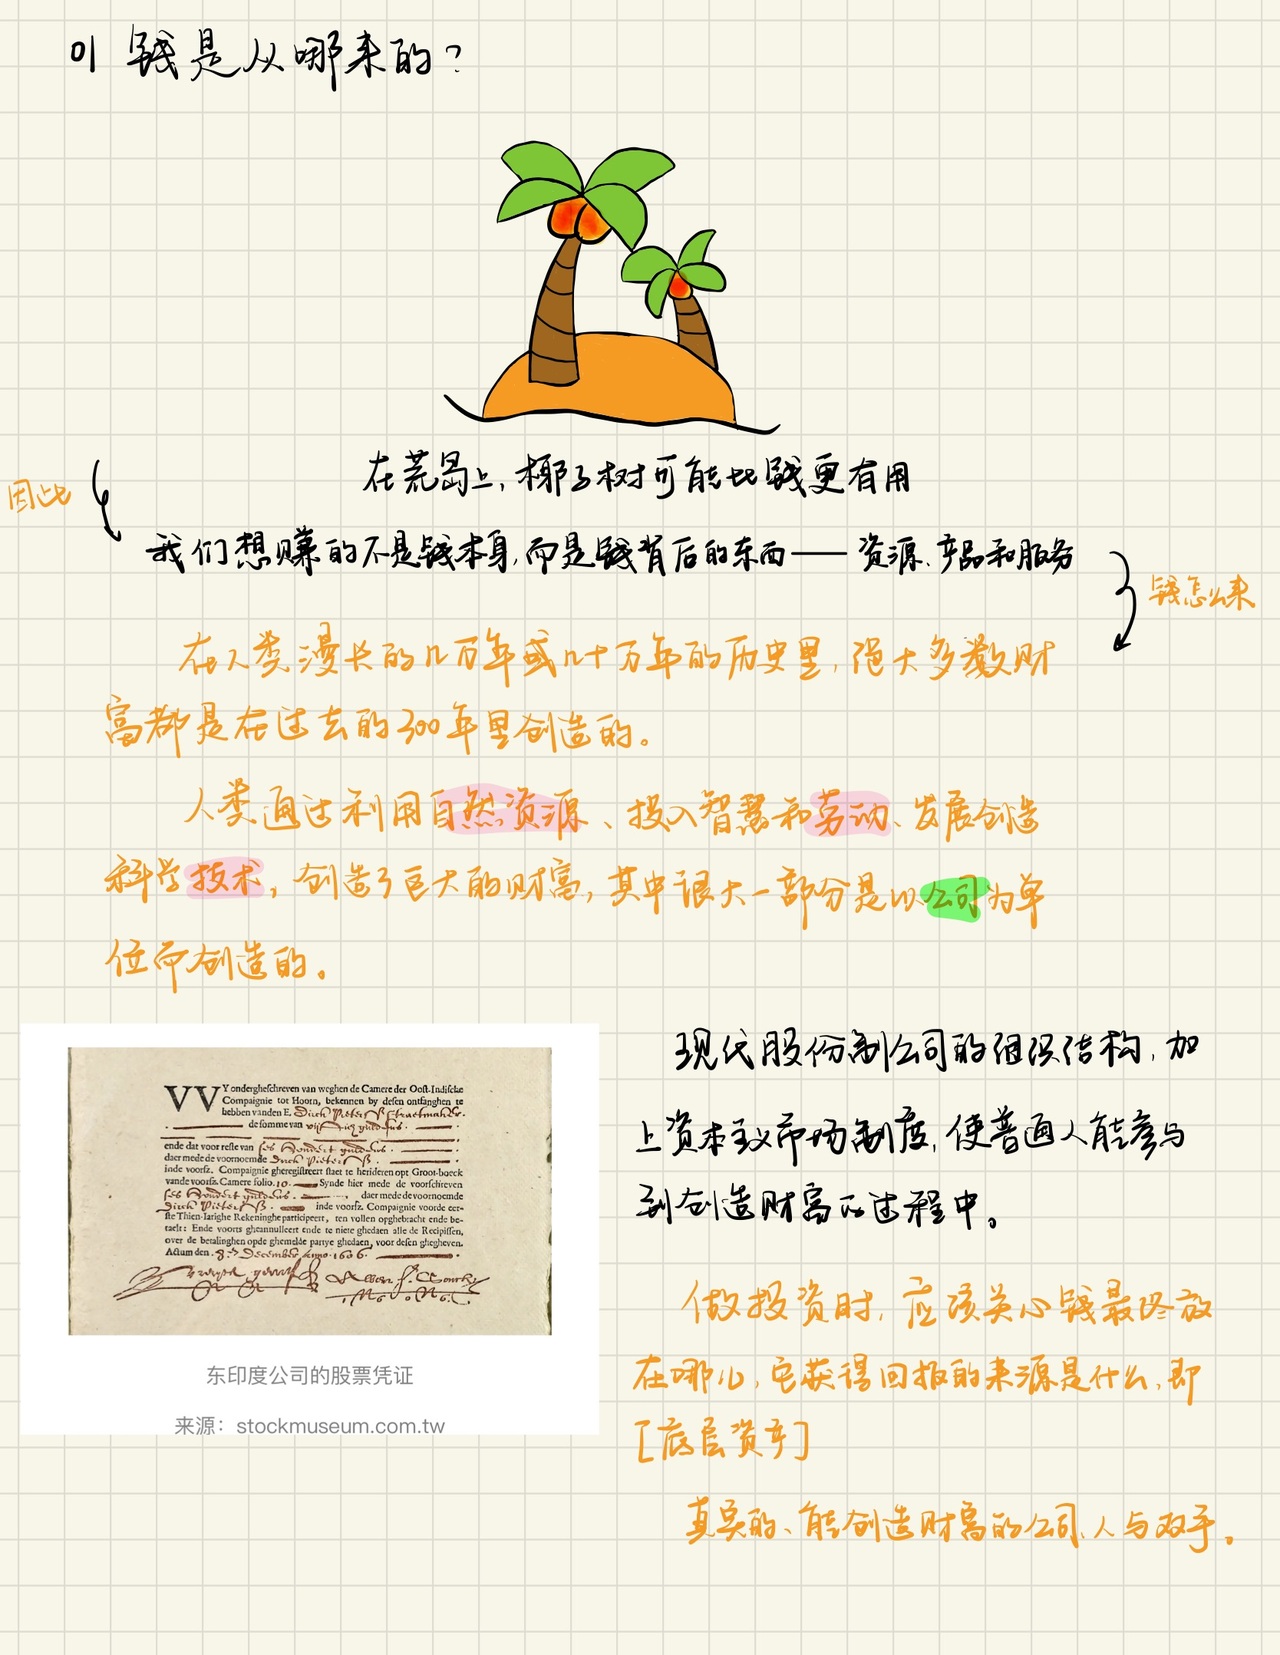 01 钱是从哪来的?
在荒岛上,椰子树可能比钱更有用
因此
我们想赚的不是钱本身,而是钱背后的东西——资源、产品和服务
钱怎么来
在人类漫长的几万年或几十万年的历史里,绝大多数财
富都是在过去的300年里创造的。
人类通过利用自然资源、投入智慧和劳动、发展创造
科学技术,创造了巨大的财富,其中很大一部分是以公司为单
位而创造的。
VVY onderghefchreven van weghen de Camere der Ooft-Indifche
Compaignie tot Hoorn, bekennen by defen ontfanghen te
hebben vanden E.
de fomme van
ende dat voor refte van
daer mede de voornoemde
inde voorfz. Compaignie gheregiftreert ftaet te herideren opt Groot-boeck
vande voorfz. Camere folio. 10. Synde hier mede de voorfchreven
daer mede de voornoemde
inde voorfz. Compaignie voorde eer-
fte Thien-Iarighe Rekeninghe participeert, ten vollen opghebracht ende be-
taelt: Ende voorts ghannulleert ende te niete ghedaen alle de Recipiffen,
over de betalinghen opde ghemelde partye ghedaen, voor defen ghegheven.
Actum den. 8. December anno. 1606.
东印度公司的股票凭证
来源：stockmuseum.com.tw
现代股份制公司的组织结构,加
上资本主义市场制度,使普通人能参与
到创造财富的过程中。
做投资时,应该关心钱最终放
在哪儿,它获得回报的来源是什么,即
[底层资产]
真实的、能创造财富的公司、人与双手。